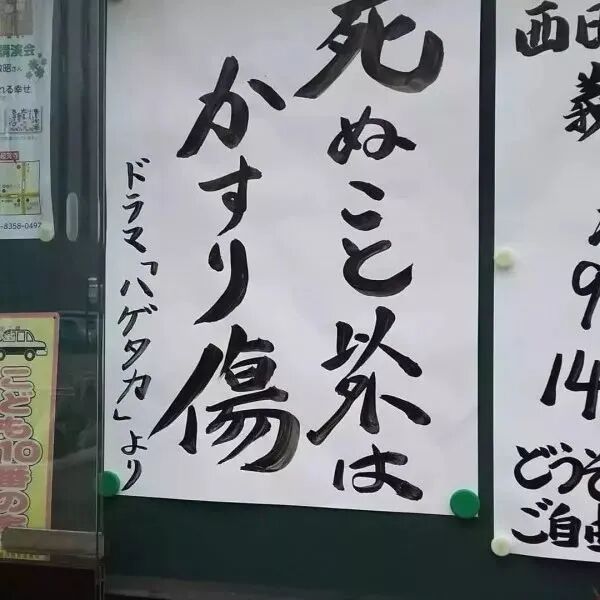 死ぬこと以外は
かすり傷
ドラマ「ハゲタカ」より
西田
9
14
どうぞ
ご自由
講演会
れる幸せ
-8358-0497
こども110番の